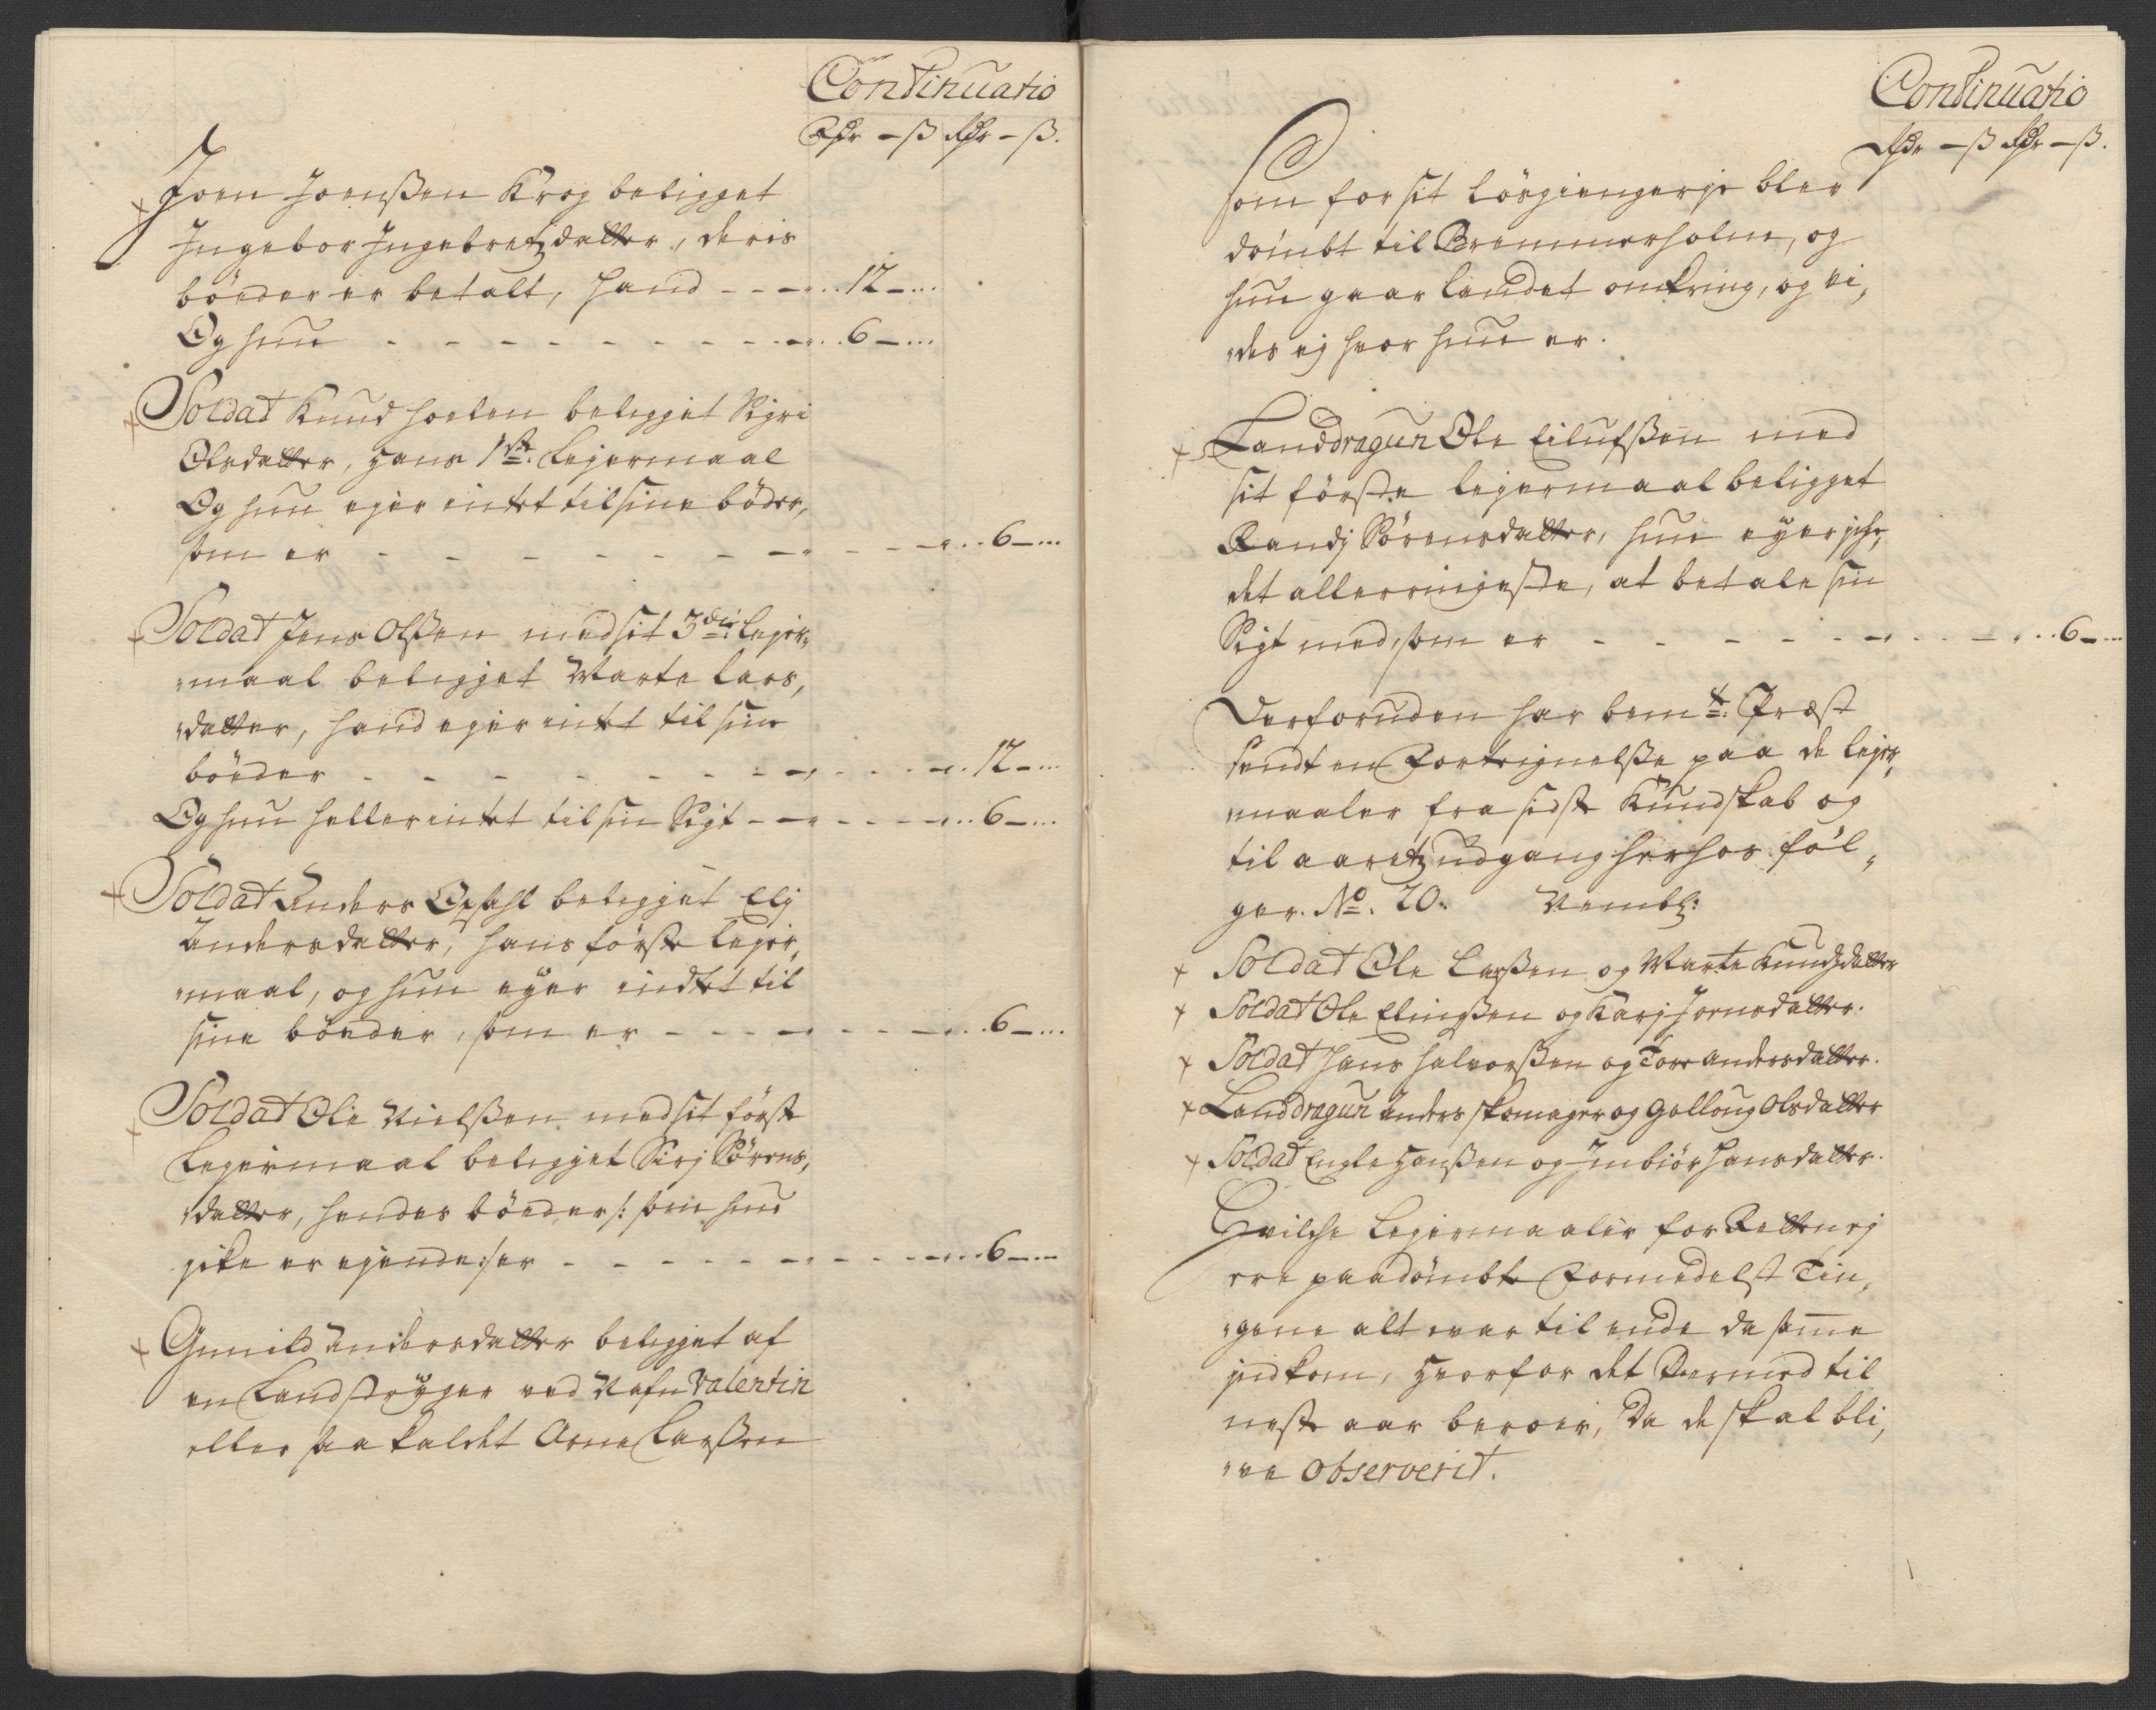 Continuatio
Rdr - ß Rdr - ß.
+ Joen Joenßen Krog beligget
Ingebor Ingebretzdatter, deris
böeder er betalt, hand - - - 12 - ...
Og hun - - - - - - - - - 6 - ...
+ Soldat Knud Hoelen beligget Sigri
Olsdatter, Hans 1ste Lejermaal
Og hun ejer intet til sine böder,
som er - - - - - - - - - 6 - ...
+ Soldat Jens Olßen med sit 3die Lejer,
maal beligget Marte Lars,
datter, hand ejer intet til sine
böeder - - - - - - - - - 12 - ...
Og hun heller intet til sin Sigt - - - - - 6 - ...
+ Soldat Anders Opsahl beligget Elj
Andersdatter, hans förste Lejer,
maal, og hun eyer indtet til
sine böeder, som er - - - - - - 6 - ...
+ Soldat Ole Nielßen med sit förste
Lejermaal beligget Sirj Sörens,
datter, hendes böeder /: som hun
icke er ejende :/ er - - - - - - - - 6 - ...
+ Gunild Andersdatter beligget af
en Landstryger ved Nafn Valentin
eller saa kaldet Arne Larßen
Continuatio
Rdr - ß Rdr - ß.
som for sit lösgiengerje blev
dömbt til Bremmerholm, og
hun gaar landet omkring, og vi,
des ej hvor hun er.
+ Landdragun Ole Eilufßen med
sit förste lejermaal beligget
Randj Sörensdatter, hun eyer iche
det allerringeste, at betale sin
Sigt med, som er - - - - - - - - 6 - ...
Derforuden har bemte: Præst
sendt en Fortegnelße paa de lejer,
maaler fra sidste Kundskab og
til aaretz udgang herhos föl,
ger. No. 20. Nembl:
+ Soldat Ole Larßen og Marte Knudzdatter
+ Soldat Ole Elingßen og Karj Joensdatter.
+ Soldat Hans Halvorßen og Tore Andersdatter.
+ Landdragun Anders Skomager og Golloug Olsdatter
+ Soldat Engle Hanßen og Inbiör Hansdatter.
Hvilche Lejermaaler for Retten ej
ere paadömbte Formedelst Tin,
gene alt var til ende da same
indkom, Hvorfor det dermed til
neste aar beroer, da de skal bli,
ve observerit.